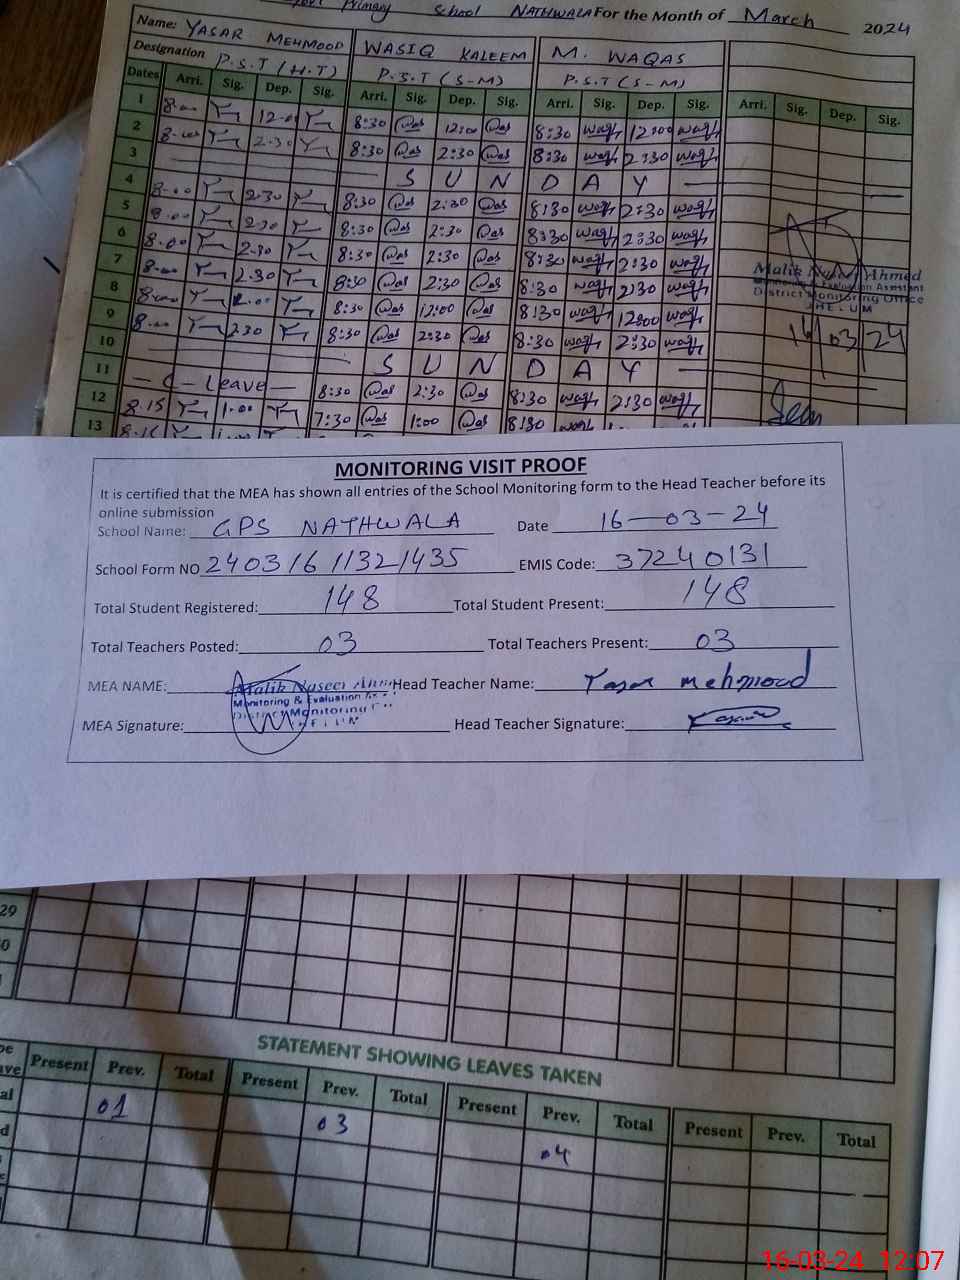 Primary School NATHWALA For the Month of March 2024
Name: YASAR MEHMOOD WASIQ KALEEM M. WAQAS
Designation P.S.T (H.T) P.S.T (S-M) P.S.T (S-M)
Dates Arri. Sig. Dep. Sig. Arri. Sig. Dep. Sig. Arri. Sig. Dep. Sig. Arri. Sig. Dep. Sig.
1 8:00 12:00 8:30 12:00 8:30 12:00
2 8:00 2:30 8:30 2:30 8:30 2:30
3 S U N D A Y
4 8:00 2:30 8:30 2:30 8:30 2:30
5 8:00 2:30 8:30 2:30 8:30 2:30
6 8:00 2:30 8:30 2:30 8:30 2:30
7 8:00 2:30 8:30 2:30 8:30 2:30
8 8:00 8:30 12:00 8:30 12:00
9 8:00 2:30 8:30 2:30 8:30 2:30
10 S U N D A Y
11 - C - Leave - 8:30 2:30 8:30 2:30
12 8:15 1:00 7:30 1:00 8:30
13
Malik Ahmed
Monitoring & Evaluation Assistant
District Monitoring Office
JHELUM
16/03/24
MONITORING VISIT PROOF
It is certified that the MEA has shown all entries of the School Monitoring form to the Head Teacher before its
online submission
School Name: GPS NATHWALA Date 16-03-24
School Form NO 24031611321435 EMIS Code: 37240131
Total Student Registered: 148 Total Student Present: 148
Total Teachers Posted: 03 Total Teachers Present: 03
MEA NAME: Malik Naseer Head Teacher Name: Yasar Mehmood
Monitoring & Evaluation
District Monitoring
MEA Signature: Head Teacher Signature:
29
STATEMENT SHOWING LEAVES TAKEN
Present Prev. Total Present Prev. Total Present Prev. Total Present Prev. Total
01 03 04
16-03-24 12:07